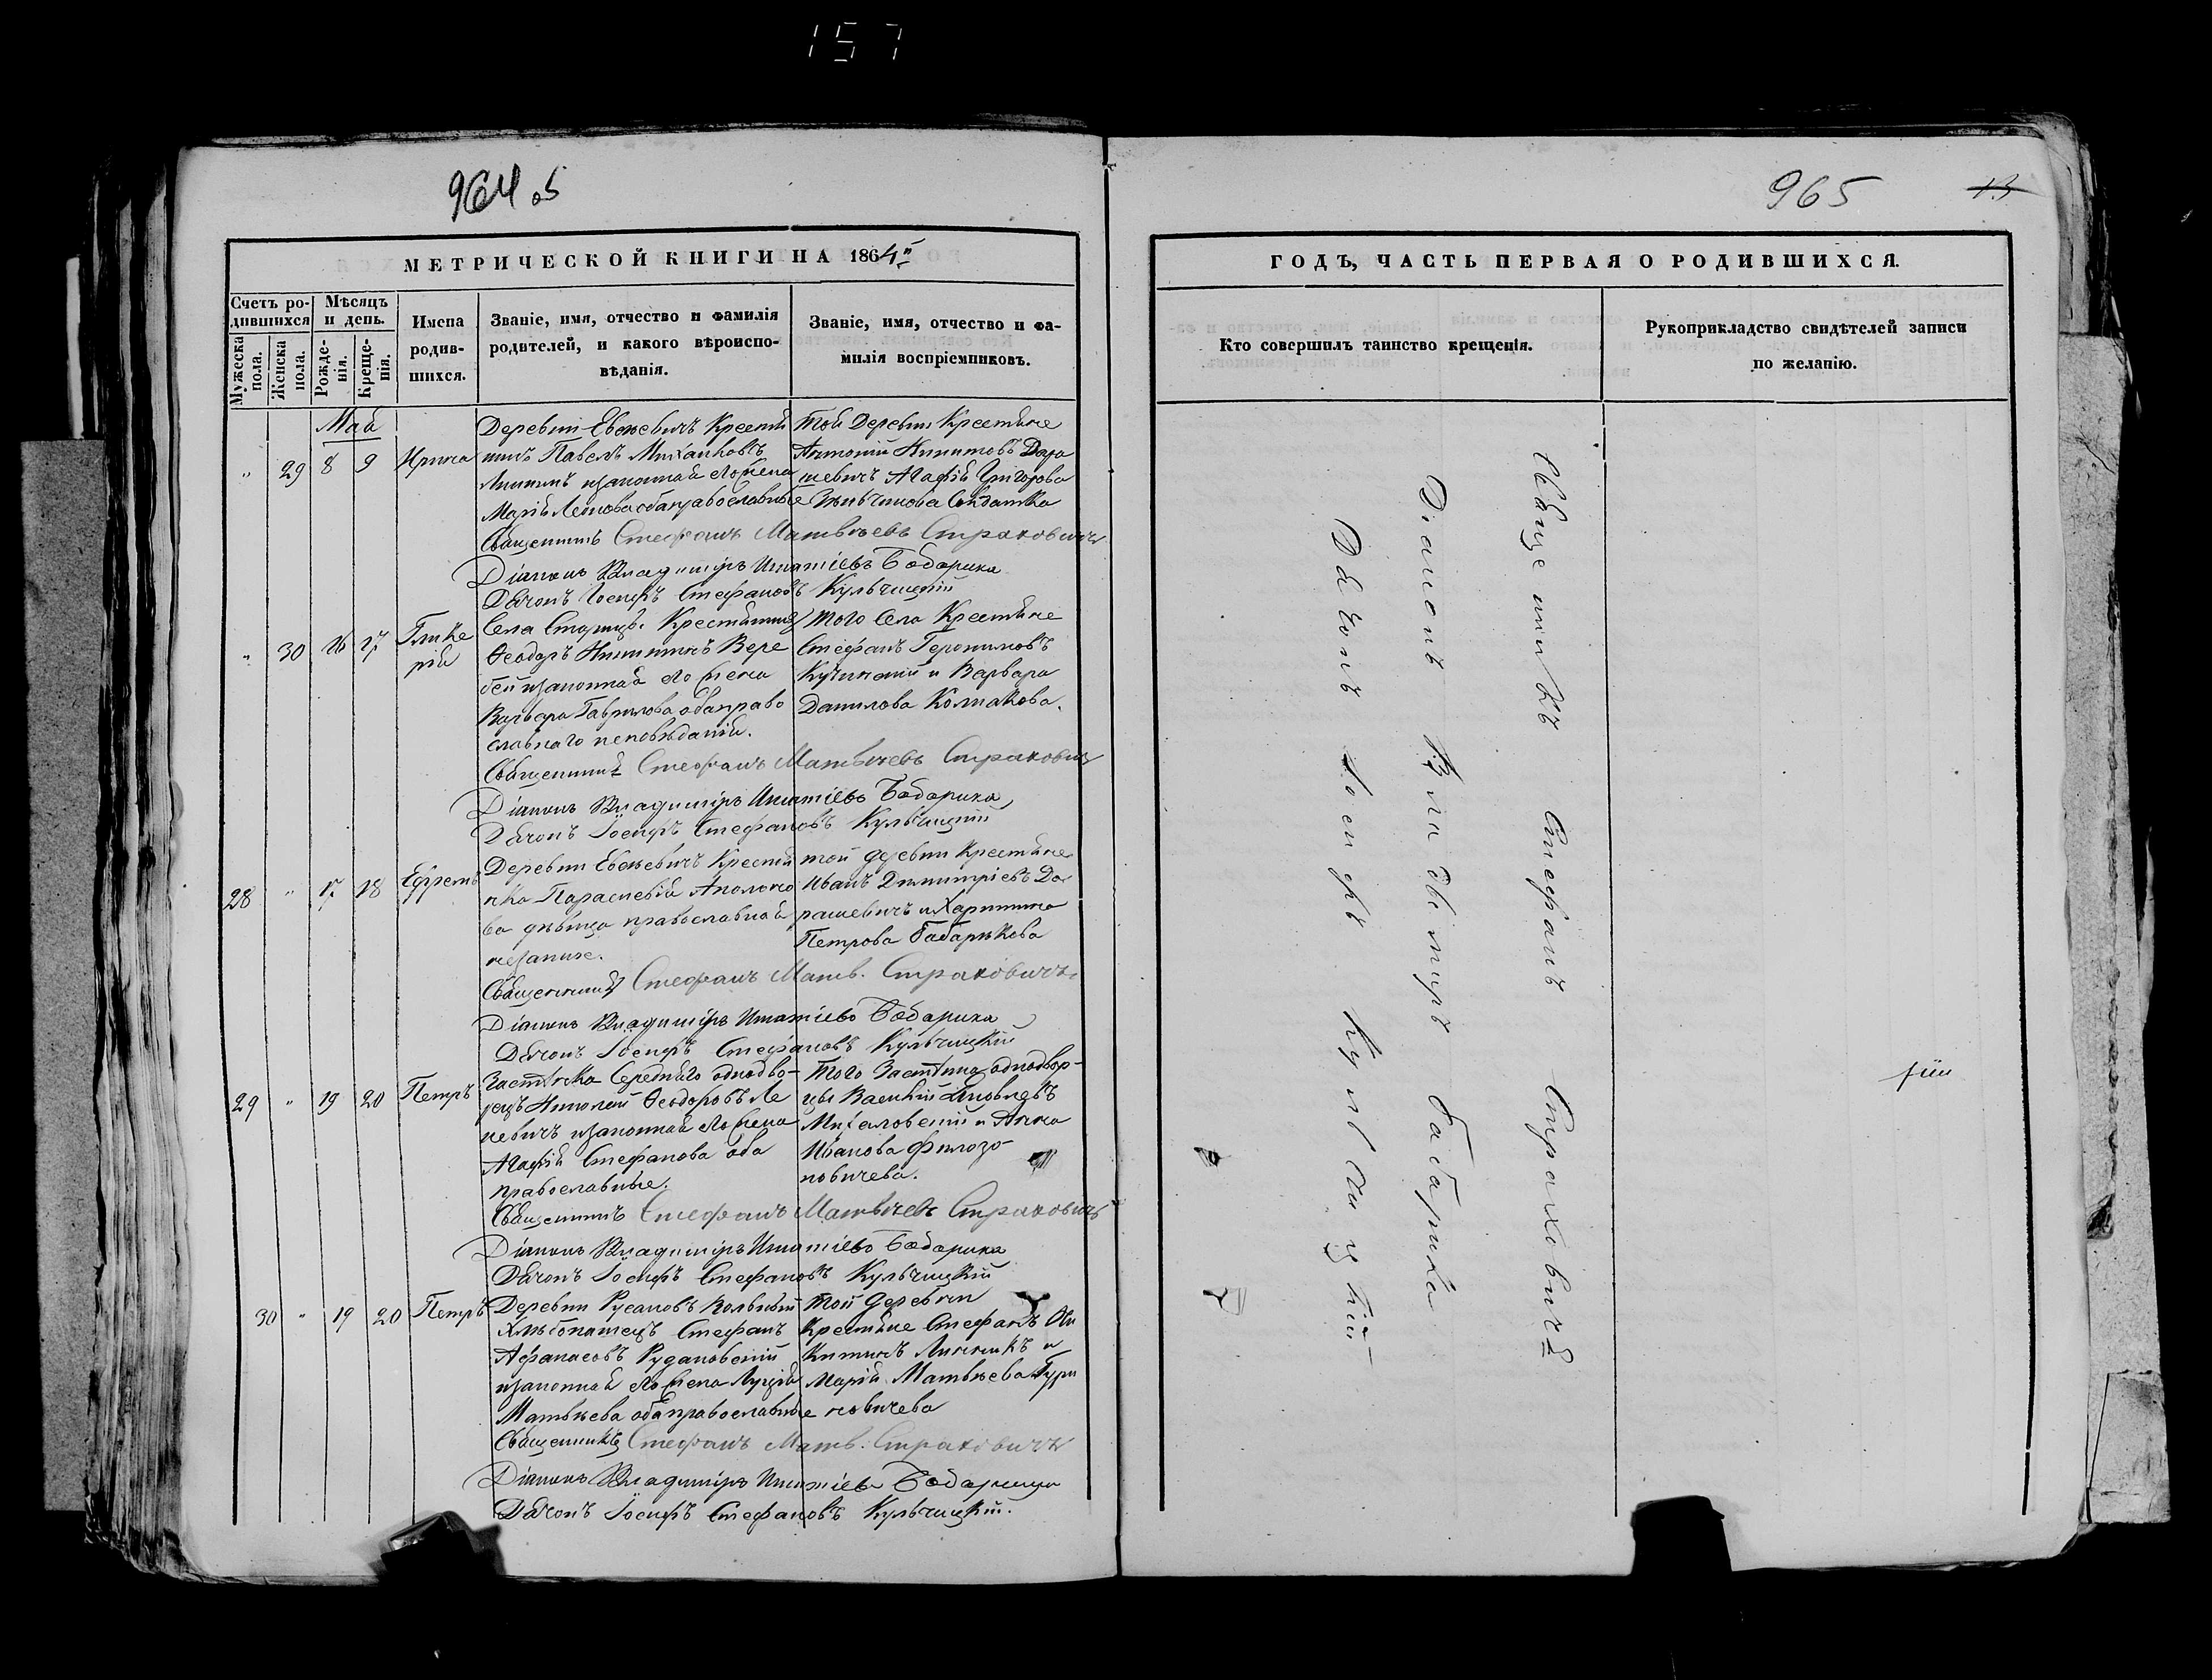 157
964 об
965
13
МЕТРИЧЕСКОЙ КНИГИ НА 1864й
ГОДЪ, ЧАСТЬ ПЕРВАЯ О РОДИВШИХСЯ.
Счетъ ро-
дившихся
Мужеска
пола.
Женска
пола.
Мѣсяцъ
и день.
Рожде-
нія.
Креще-
нія.
Имена
родив-
шихся.
Званіе, имя, отчество и фамилія
родителей, и какого вѣроиспо-
вѣданія.
Званіе, имя, отчество и фа-
милія воспріемниковъ.
Кто совершилъ таинство крещенія.
Рукоприкладство свидѣтелей записи
по желанію.
Май
" 29 8 9 Ирина
Деревни Евсевичъ Крестья
нинъ Павелъ Михайловъ
законная его жена
Марія Леонова оба православные
Той Деревни Крестьяне
Антоній Никитовъ Дора
шевичъ Агафія Григорова
Солдатка
Священникъ Стефанъ Матвѣевъ Страховичъ
Діаконъ Владиміръ Игнатіевъ Бобарика
Дьячокъ Іосифъ Стефановъ Кульчицкій
" 30 16 17 Глике
рія
Села Старицы Крестьянинъ
Ѳеодоръ Никитинъ Вере
бей и законная его жена
Варвара Гаврилова оба право
славнаго исповѣданія.
того Села Крестьяне
Стефанъ Геронимовъ
Кучинскій и Варвара
Данилова Колпакова.
Священникъ Стефанъ Матвѣевъ Страховичъ
Діаконъ Владиміръ Игнатіевъ Бобарика
Дьячокъ Іосифъ Стефановъ Кульчицкій
28 " 17 18 Ефремъ
Деревни Евсевичъ Крестья
нка Параскевія Аполоно
ва дѣвица православная
той деревни Крестьяне
Иванъ Дмитріевъ До
рашевичъ и Харитина
Петрова
Священникъ Стефанъ Матв. Страховичъ
Діаконъ Владиміръ Игнатіевъ Бобарика
Дьячокъ Іосифъ Стефановъ Кульчицкій
29 " 19 20 Петръ
Застѣнка Середняго однодво-
рецъ Николай Ѳеодоровъ Ле
невичъ и законная его жена
Агафія Стефанова оба
православные.
Того Застѣнка однодвор-
цы Василій Яковлевъ
Михаловскій и Анна
Иванова Филозо
повичева.
Священникъ Стефанъ Матвѣевъ Страховичъ
Діаконъ Владиміръ Игнатіевъ Бобарика
Дьячокъ Іосифъ Стефановъ Кульчицкій
30 " 19 20 Петръ
Деревни Русановъ вольный
хлѣбопашецъ Стефанъ
Афанасовъ Рудановскій
и законная его жена Луція
Матвѣева оба православные
Той деревни
Крестьяне Стефанъ Ни
китинъ Линникъ и
Марія Матвѣева Гури
новичева
Священникъ Стефанъ Матв. Страховичъ
Діаконъ Владиміръ Игнатіевъ Бобарика
Дьячокъ Іосифъ Стефановъ Кульчицкій.
Священникъ Стефанъ Страховичъ
Діаконъ Владиміръ Бабарика
Дьячокъ Іосифъ Кульчицкій